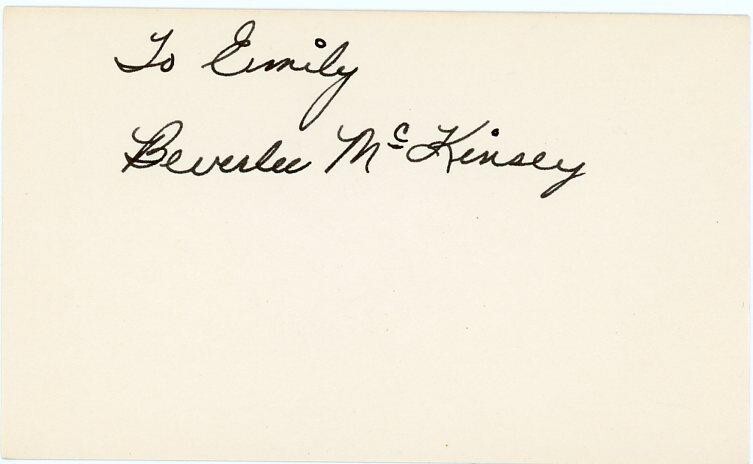 To Emily
Beverlee McKinsey